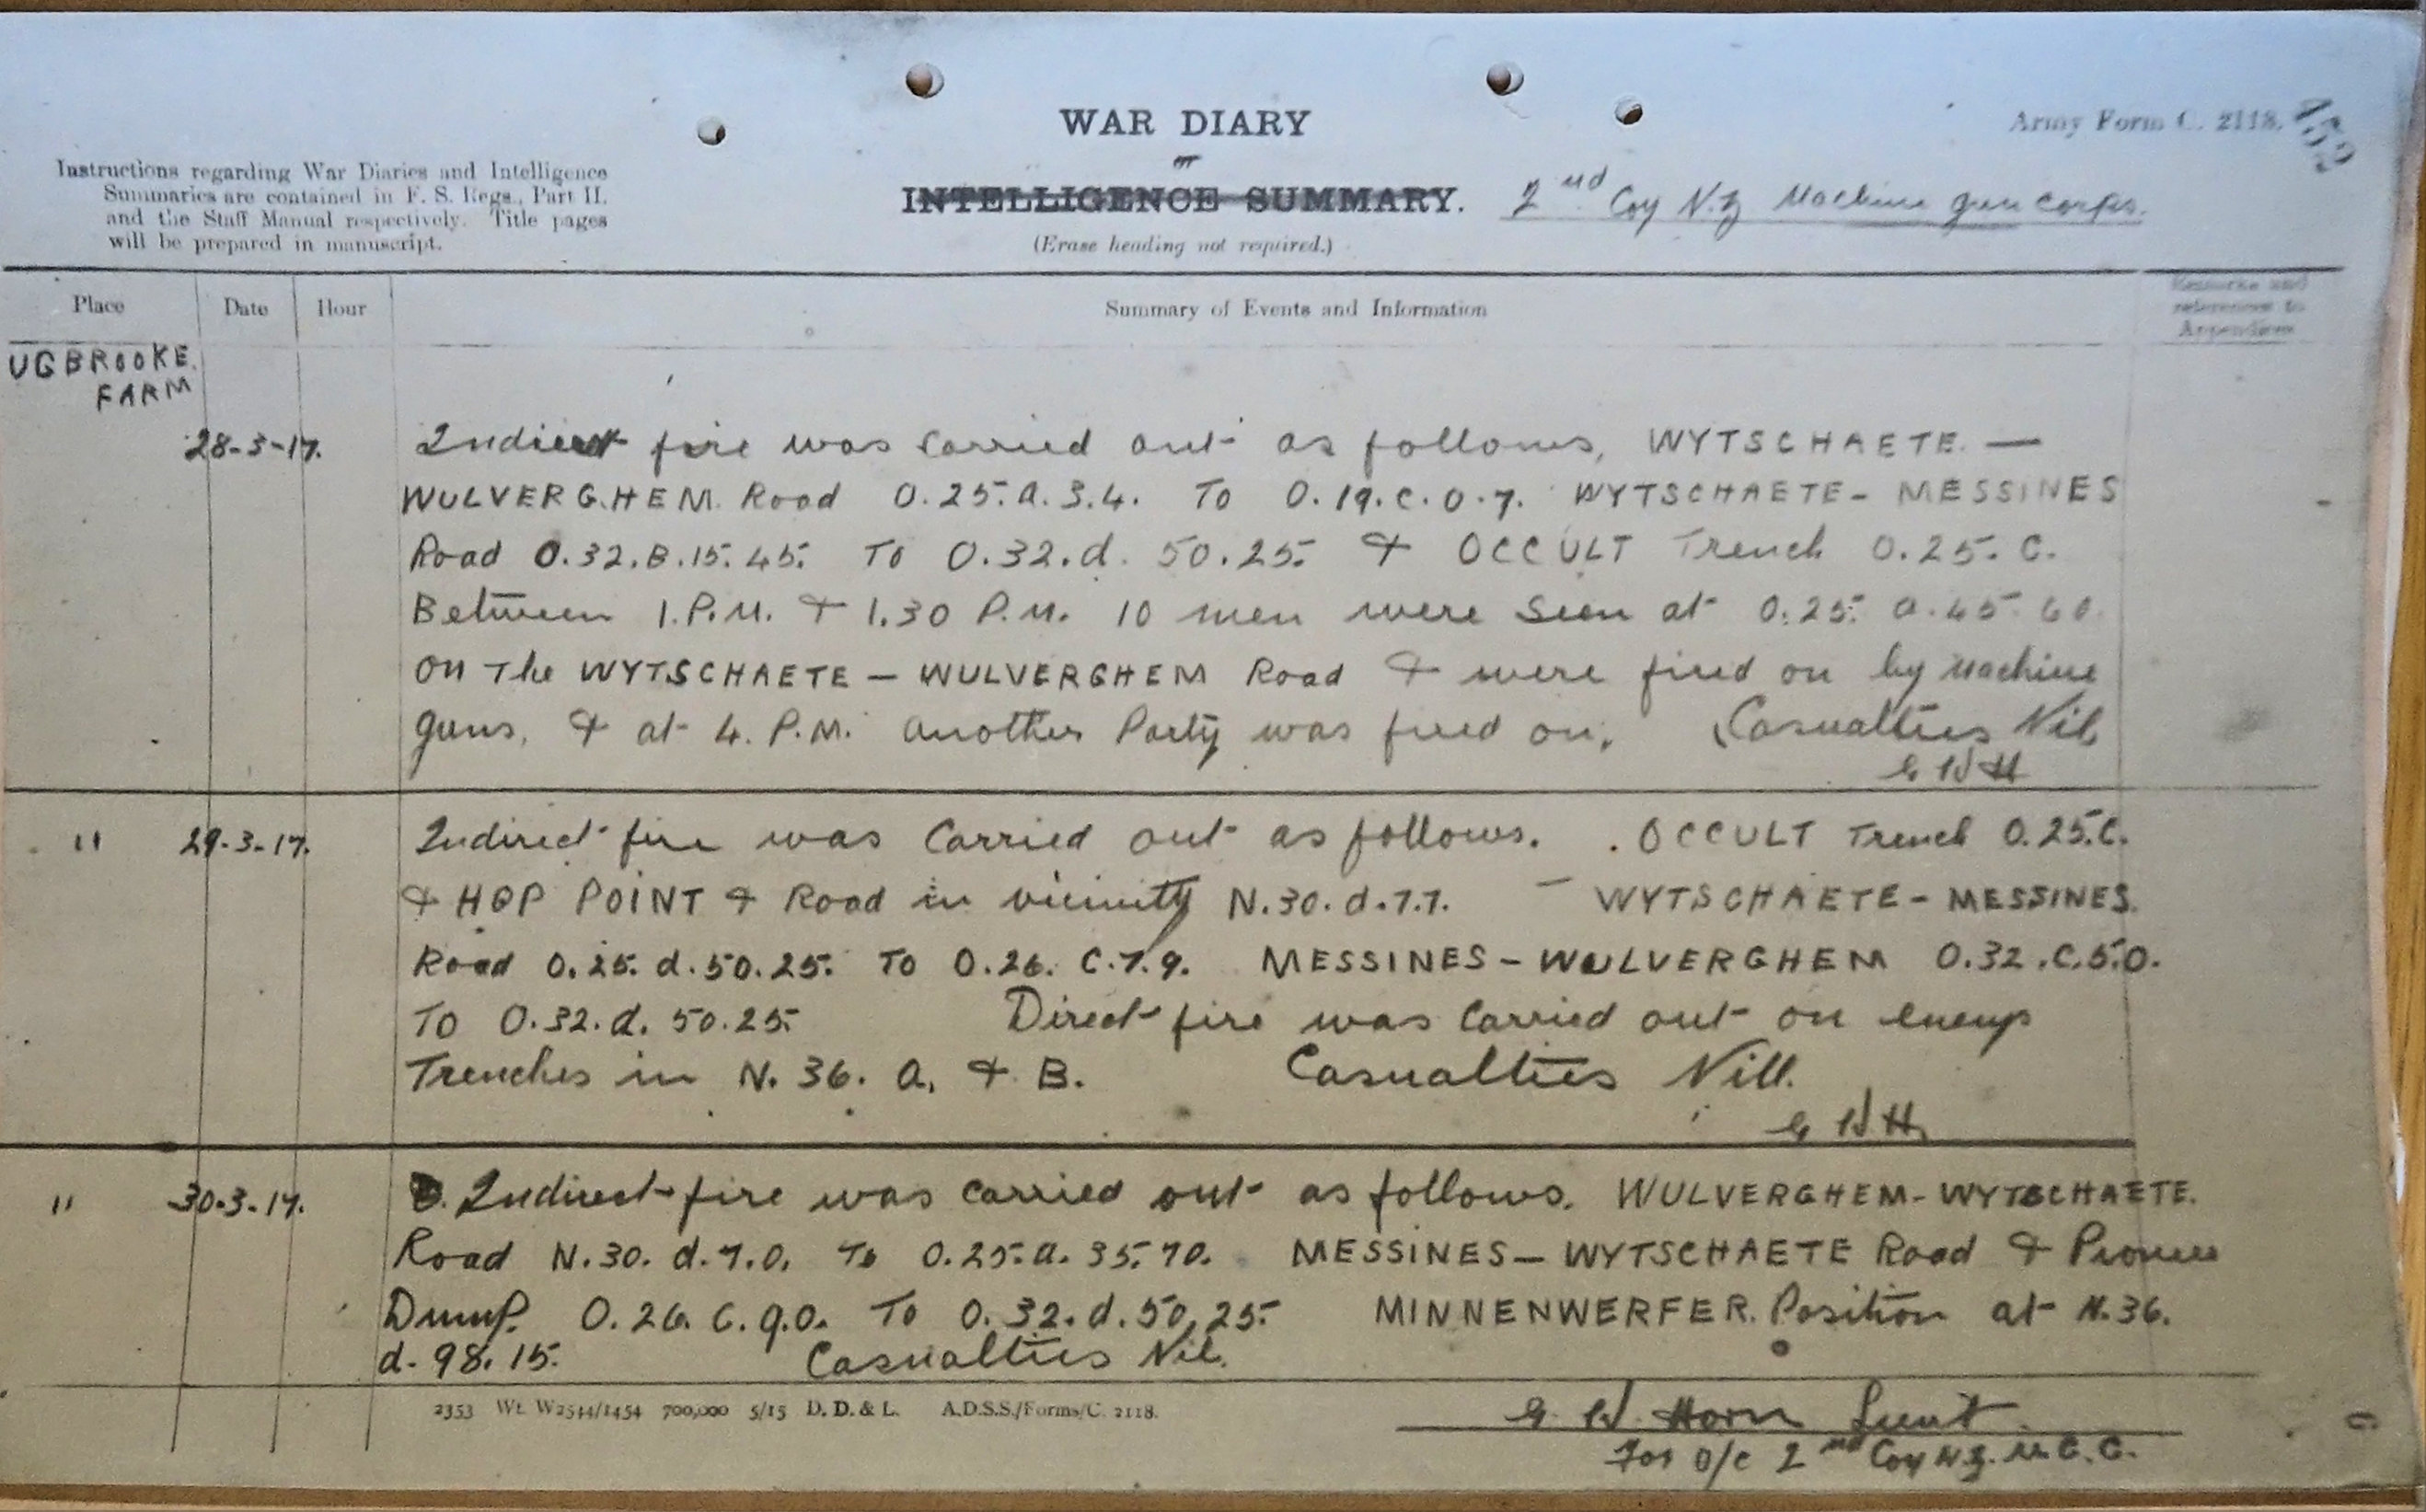 WAR DIARY
or
INTELLIGENCE SUMMARY.
(Erase heading not required.)
2nd Coy N.Z Machine gun corps.
Army Form C. 2118.
Instructions regarding War Diaries and Intelligence
Summaries are contained in F. S. Regs., Part II.
and the Staff Manual respectively. Title pages
will be prepared in manuscript.
Place Date Hour Summary of Events and Information Remarks and
references to
Appendices
UGBROOKE.
FARM
28-3-17. Indirect fire was carried out as follows, WYTSCHAETE. —
WULVERGHEM. Road O.25.a.3.4. To O.19.c.0.7. WYTSCHAETE - MESSINES
Road O.32.B.15.45. To O.32.d. 50.25. & OCCULT Trench O.25.C.
Between 1.P.M. & 1.30 P.M. 10 men were seen at O.25. a.45.60.
on The WYTSCHAETE — WULVERGHEM Road & were fired on by machine
guns, & at 4. P.M. another Party was fired on. Casualties Nil
G W H
" 29-3-17. Indirect fire was Carried out as follows. . OCCULT Trench O.25.C.
& HOP POINT & Road in vicinity N.30.d.7.7. – WYTSCHAETE - MESSINES.
Road O.25.d.50.25. To O.26.C.7.9. MESSINES - WULVERGHEM O.32.C.5.0.
To O.32.d. 50.25. Direct fire was Carried out on enemy
Trenches in N.36. a. & B. Casualties Nill.
G W H
" 30-3-17. Indirect fire was carried out as follows. WULVERGHEM - WYTSCHAETE.
Road N.30. d.7.0. To O.25.a. 35.70. MESSINES — WYTSCHAETE Road & Pioneer
Dump. O.26.C.9.0. To O.32.d.50,25. MINNENWERFER. Position at N.36.
d. 98.15. Casualties Nil.
2353 Wt. W2544/1454 700,000 5/15 D. D. & L. A.D.S.S./Forms/C. 2118.
G W Horn Lieut.
For O/c 2nd Coy N.Z. M.G.C.